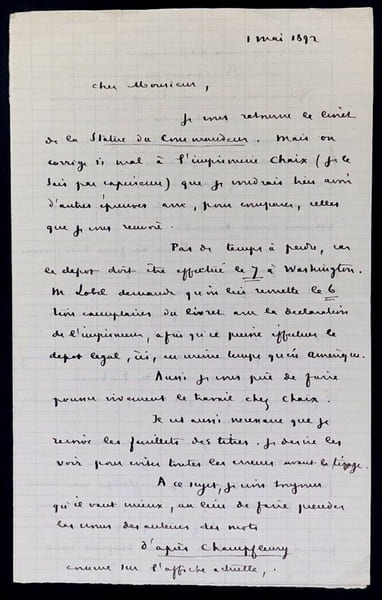 1 mai 1892
cher Monsieur,
Je vous retourne le livret
de la Statue du Commandeur. Mais on
corrige si mal à l'imprimerie Chaix (je le
sais par expérience) que je voudrais bien avoir
d'autres épreuves avec, pour comparer, celles
que je vous renvoie.
Pas de temps à perdre, car
le depot doit être effectué le 7 à Washington.
M. Lobel demande qu'on lui remette le 6
trois exemplaires du livret avec la déclaration
de l'imprimeur, afin qu'il puisse effectuer le
depot légal, ici, en meme temps qu'en Amérique.
Aussi je vous prie de faire
pousser vivement le travail chez Chaix.
Il est aussi necessaire que je
revoie les feuillets des titres. Je desire les
voir pour eviter toutes les erreurs avant le tirage.
A ce sujet, je crois toujours
qu'il vaut mieux, au lieu de faire preceder
les noms des auteurs des mots
d'après Champfleury
comme sur l'affiche actuelle,